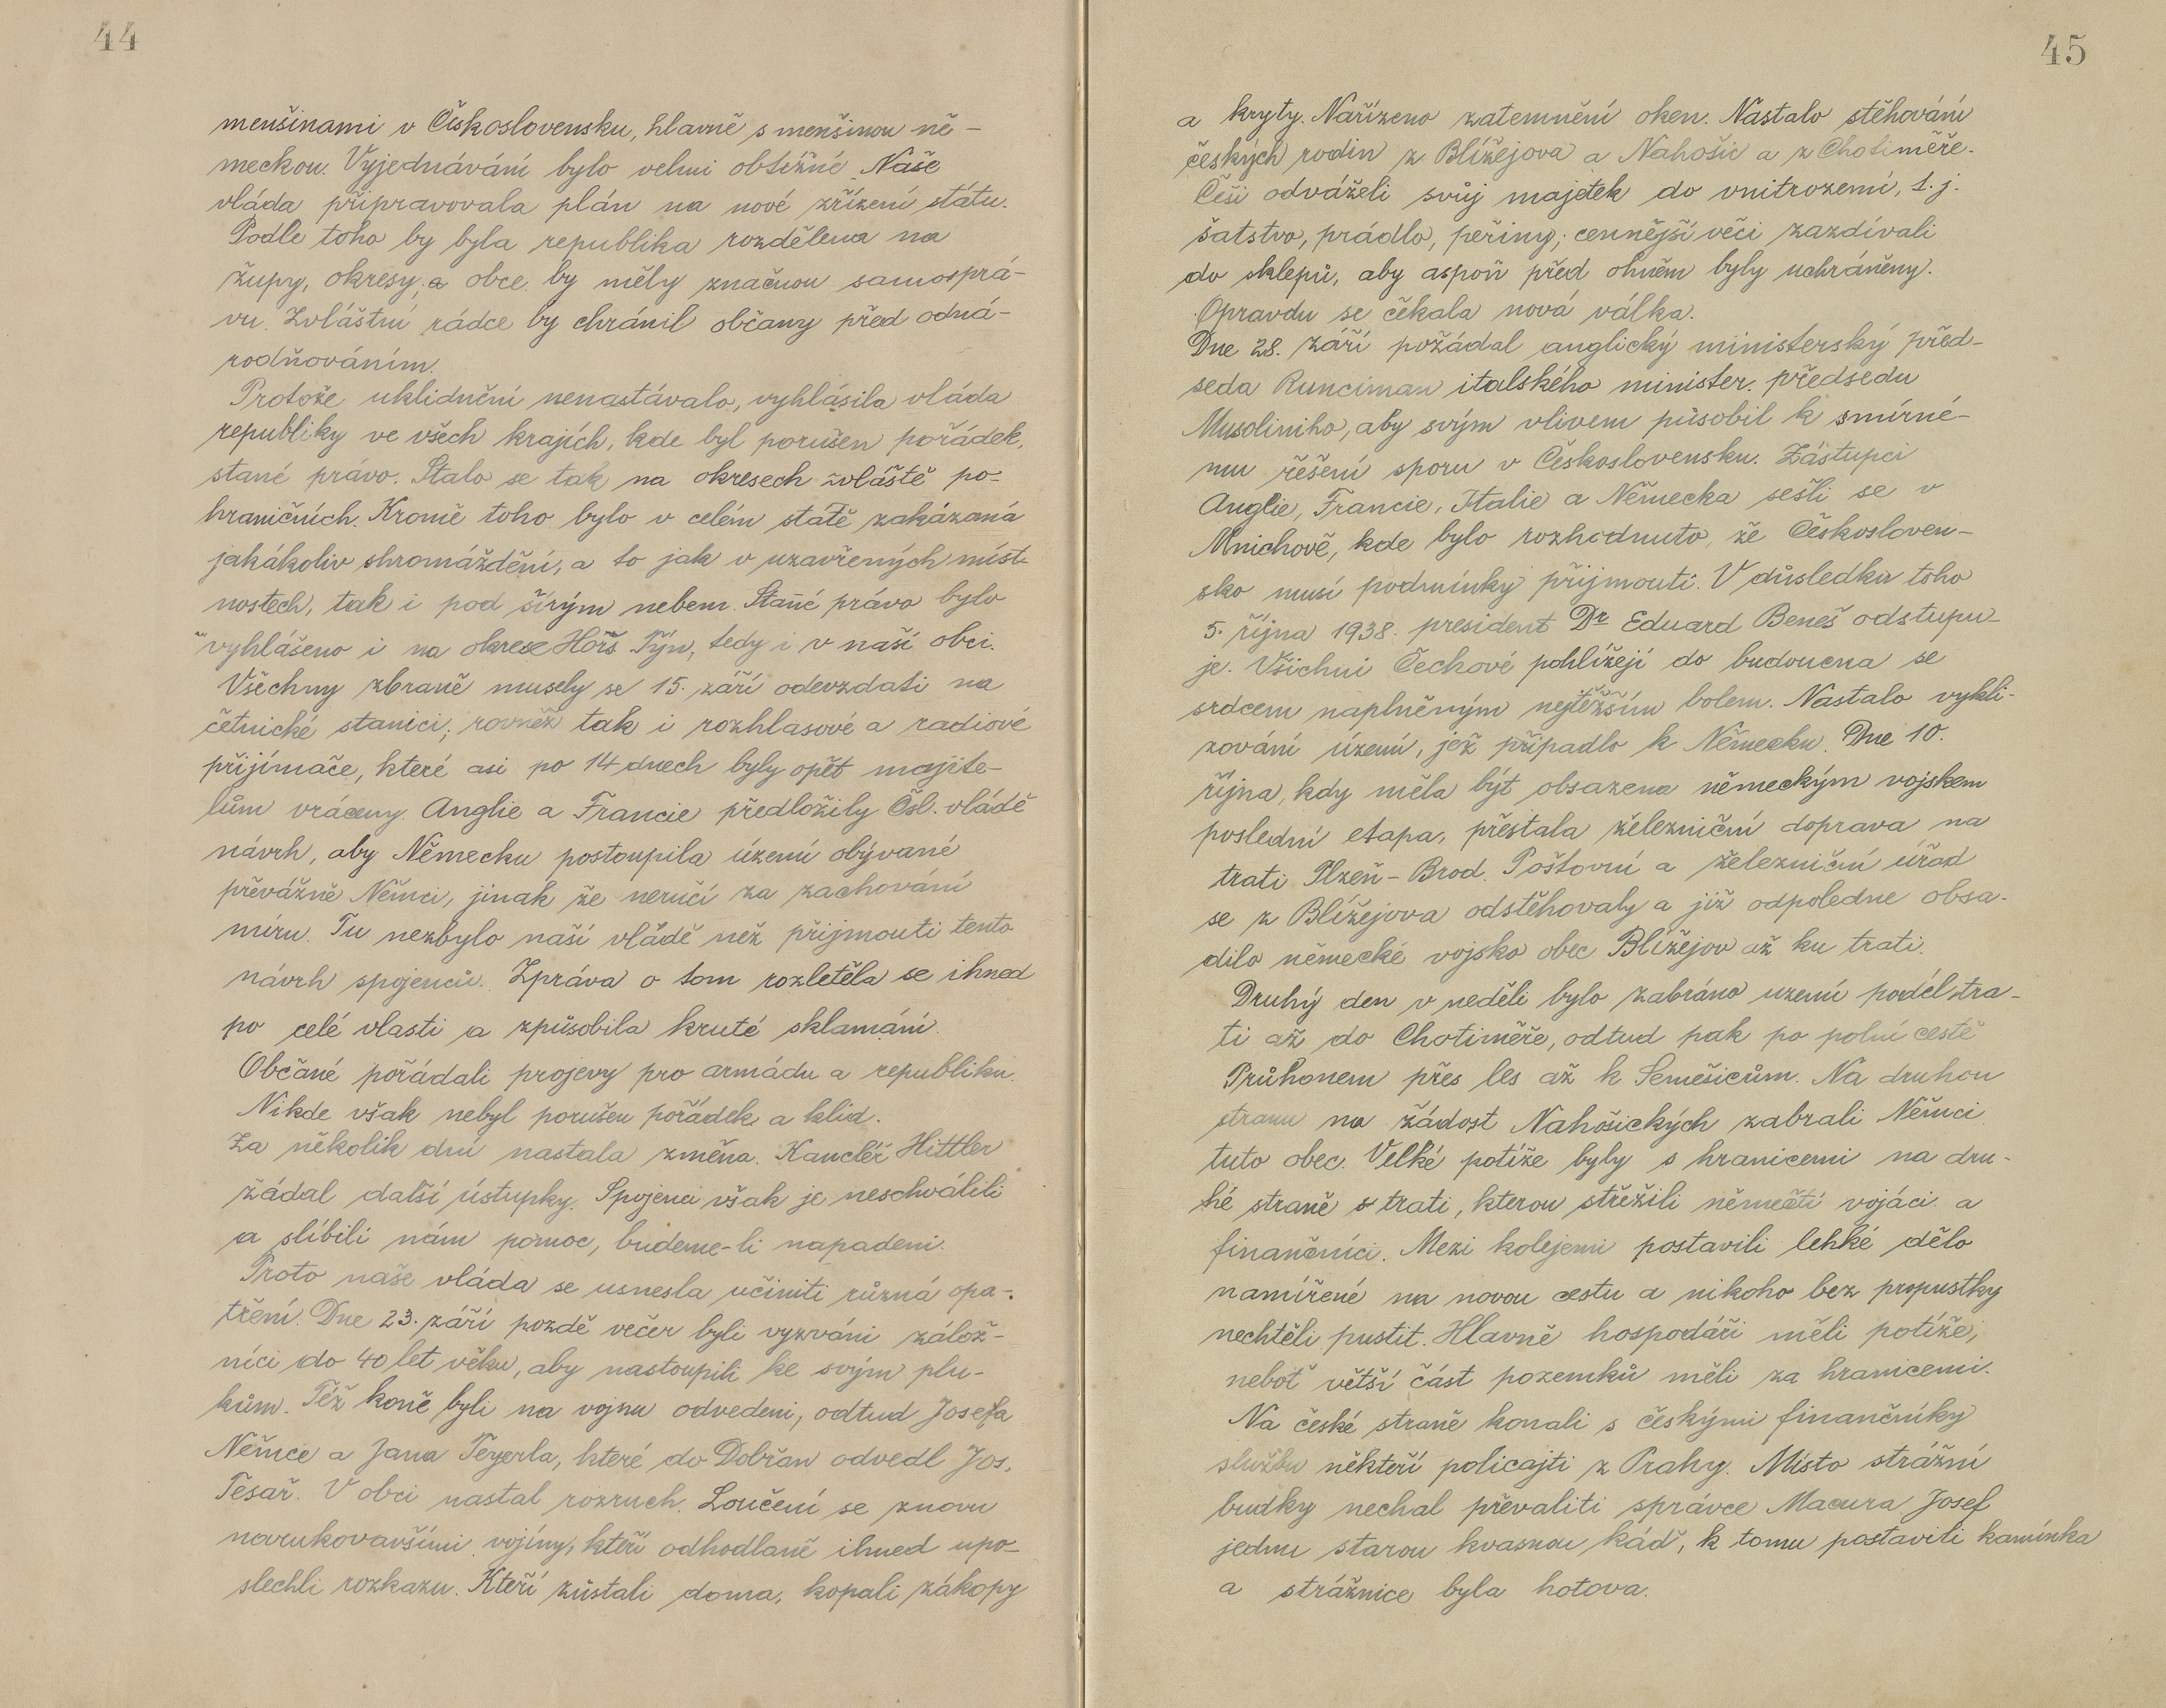 44
menšinami v Československu, hlavně s menšinou ně-
meckou. Vyjednávání bylo velmi obtížné. Naše
vláda připravovala plán na nové zřízení státu.
Podle toho by byla republika rozdělena na
župy, okresy, a obce by měly značnou samosprá-
vu. Zvláštní rádce by chránil občany před odná-
rodňováním.
Protože uklidnění nenastávalo, vyhlásila vláda
republiky ve všech krajích, kde byl porušen pořádek,
stané právo. Stalo se tak na okresech zvláště po-
hraničních. Kromě toho bylo v celém státě zakázaná
jakákoliv shromáždění, a to jak v uzavřených míst-
nostech, tak i pod širým nebem. Stané právo bylo
vyhlášeno i na okrese Horš. Týn, tedy i v naší obci.
Všechny zbraně musely se 15. září odevzdati na
četnické stanici, rovněž tak i rozhlasové a radiové
přijímače, které asi po 14 dnech byly opět majite-
lům vráceny. Anglie a Francie předložily Čsl. vládě
návrh, aby Německu postoupila území obývané
převážně Němci, jinak že neručí za zachování
míru. Tu nezbylo naší vládě než přijmouti tento
návrh spojenců. Zpráva o tom rozletěla se ihned
po celé vlasti a způsobila kruté sklamání.
Občané pořádali projevy pro armádu a republiku.
Nikde však nebyl porušen pořádek a klid.
Za několik dní nastala změna. Kancléř Hittler
žádal další ústupky. Spojenci však je neschválili
a slíbili nám pomoc, budeme-li napadeni.
Proto naše vláda se usnesla učiniti různá opa-
tření. Dne 23. září pozdě večer byli vyzváni zálož-
níci do 40 let věku, aby nastoupili ke svým plu-
kům. Též koně byli na vojnu odvedeni, odtud Josefa
Němce a Jana Teyerla, které do Dobřan odvedl Jos.
Tesař. V obci nastal rozruch. Loučení se znovu
narukovavšími vojíny, kteří odhodlaně ihned upo-
slechli rozkazu. Kteří zůstali doma, kopali zákopy
45
a kryty. Nařízeno zatemnění oken. Nastalo stěhování
českých rodin z Blížejova a Nahošic a z Chotiměře.
Češi odváželi svůj majetek do vnitrozemí, t. j.
šatstvo, prádlo, peřiny; cennější věci zazdívali
do sklepů, aby aspoň před ohněm byly uchráněny.
Opravdu se čekala nová válka.
Dne 28. září požádal anglický ministerský před-
seda Runciman italského minister. předsedu
Musoliniho, aby svým vlivem působil k smírné-
mu řešení sporu v Československu. Zástupci
Anglie, Francie, Italie a Německa sešli se v
Mnichově, kde bylo rozhodnuto, že Českosloven-
sko musí podmínky přijmouti. V důsledku toho
5. října 1938. president Dr Eduard Beneš odstupu-
je. Všichni Čechové pohlížejí do budoucna se
srdcem naplněným nejtěžším bolem. Nastalo vykli-
zování území, jež připadlo k Německu. Dne 10.
října, kdy měla být obsazena německým vojskem
poslední etapa, přestala železniční doprava na
trati Plzeň - Brod. Poštovní a železniční úřad
se z Blížejova odstěhovaly a již odpoledne obsa-
dilo německé vojsko obec Blížejov až ku trati.
Druhý den v neděli bylo zabráno uzemí podél tra-
ti až do Chotiměře, odtud pak po polní cestě
Průhonem přes les až k Semešicům. Na druhou
stranu na žádost Nahošických zabrali Němci
tuto obec. Velké potíže byly s hranicemi na dru-
hé straně s trati, kterou střežili němečtí vojáci a
finančníci. Mezi kolejemi postavili lehké dělo
namířené na novou cestu a nikoho bez propustky
nechtěli pustit. Hlavně hospodáři měli potíže,
neboť větší část pozemků měli za hranicemi.
Na české straně konali s českými finančníky
službu někteří policajti z Prahy. Místo strážní
budky nechal převaliti správce Macura Josef
jednu starou kvasnou káď, k tomu postavili kamínka
a strážnice byla hotova.